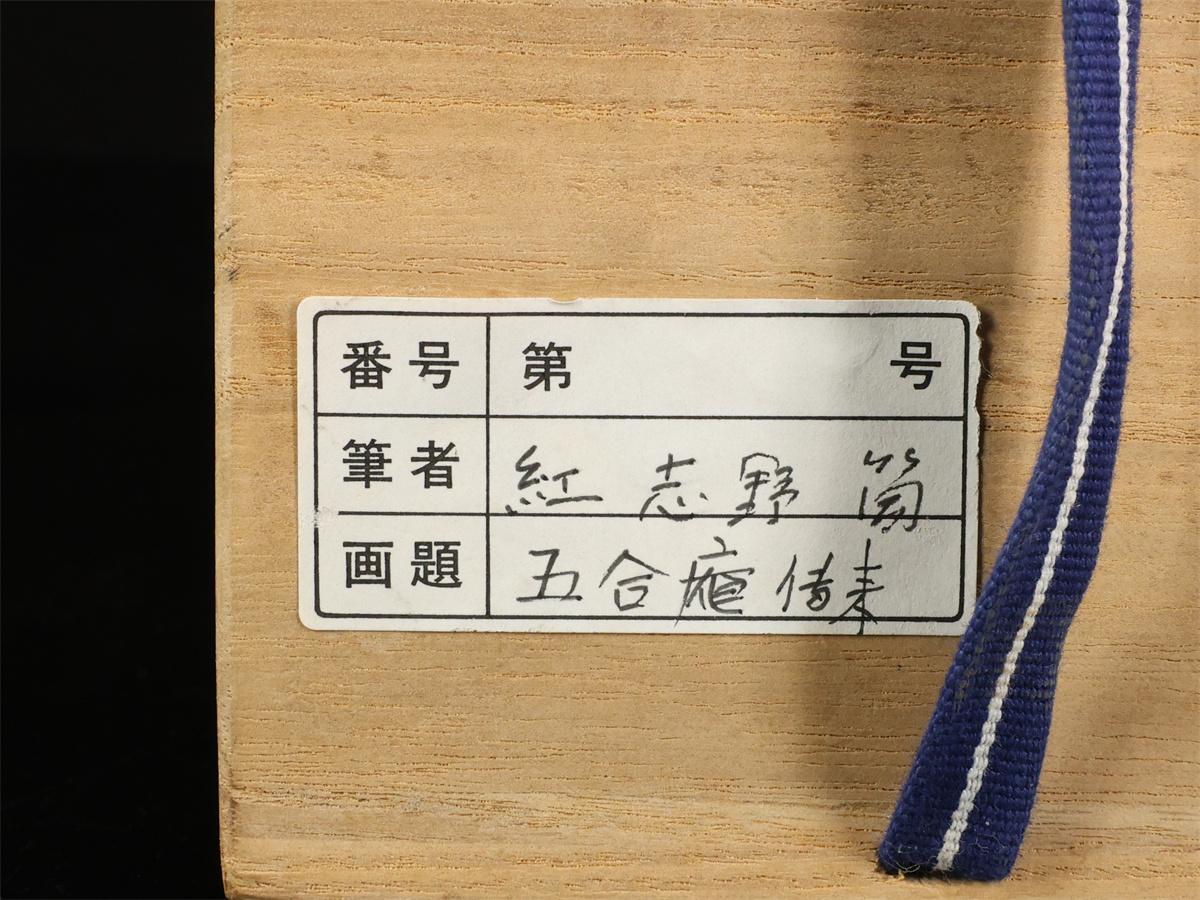 番号 第 号
筆者 紅 志野 筒
画題 五合庵 傳来